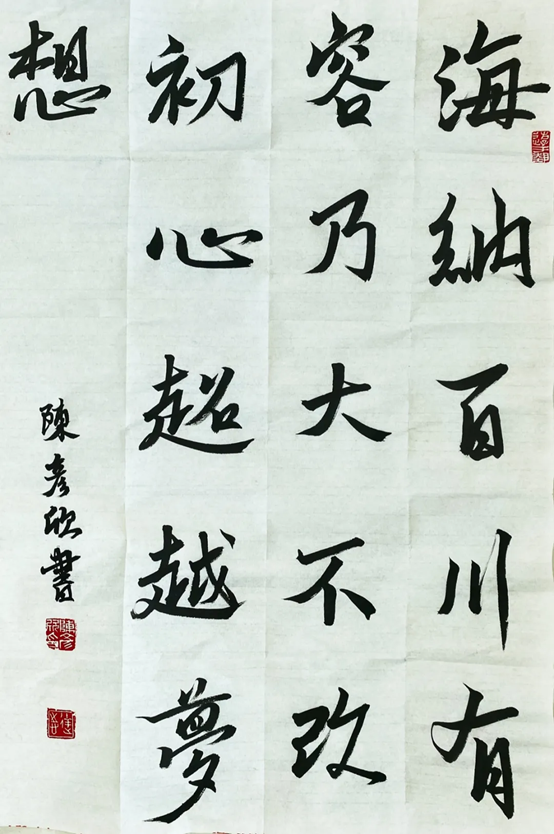 海納百川有
容乃大不改
初心超越夢
想
陳彦欣書